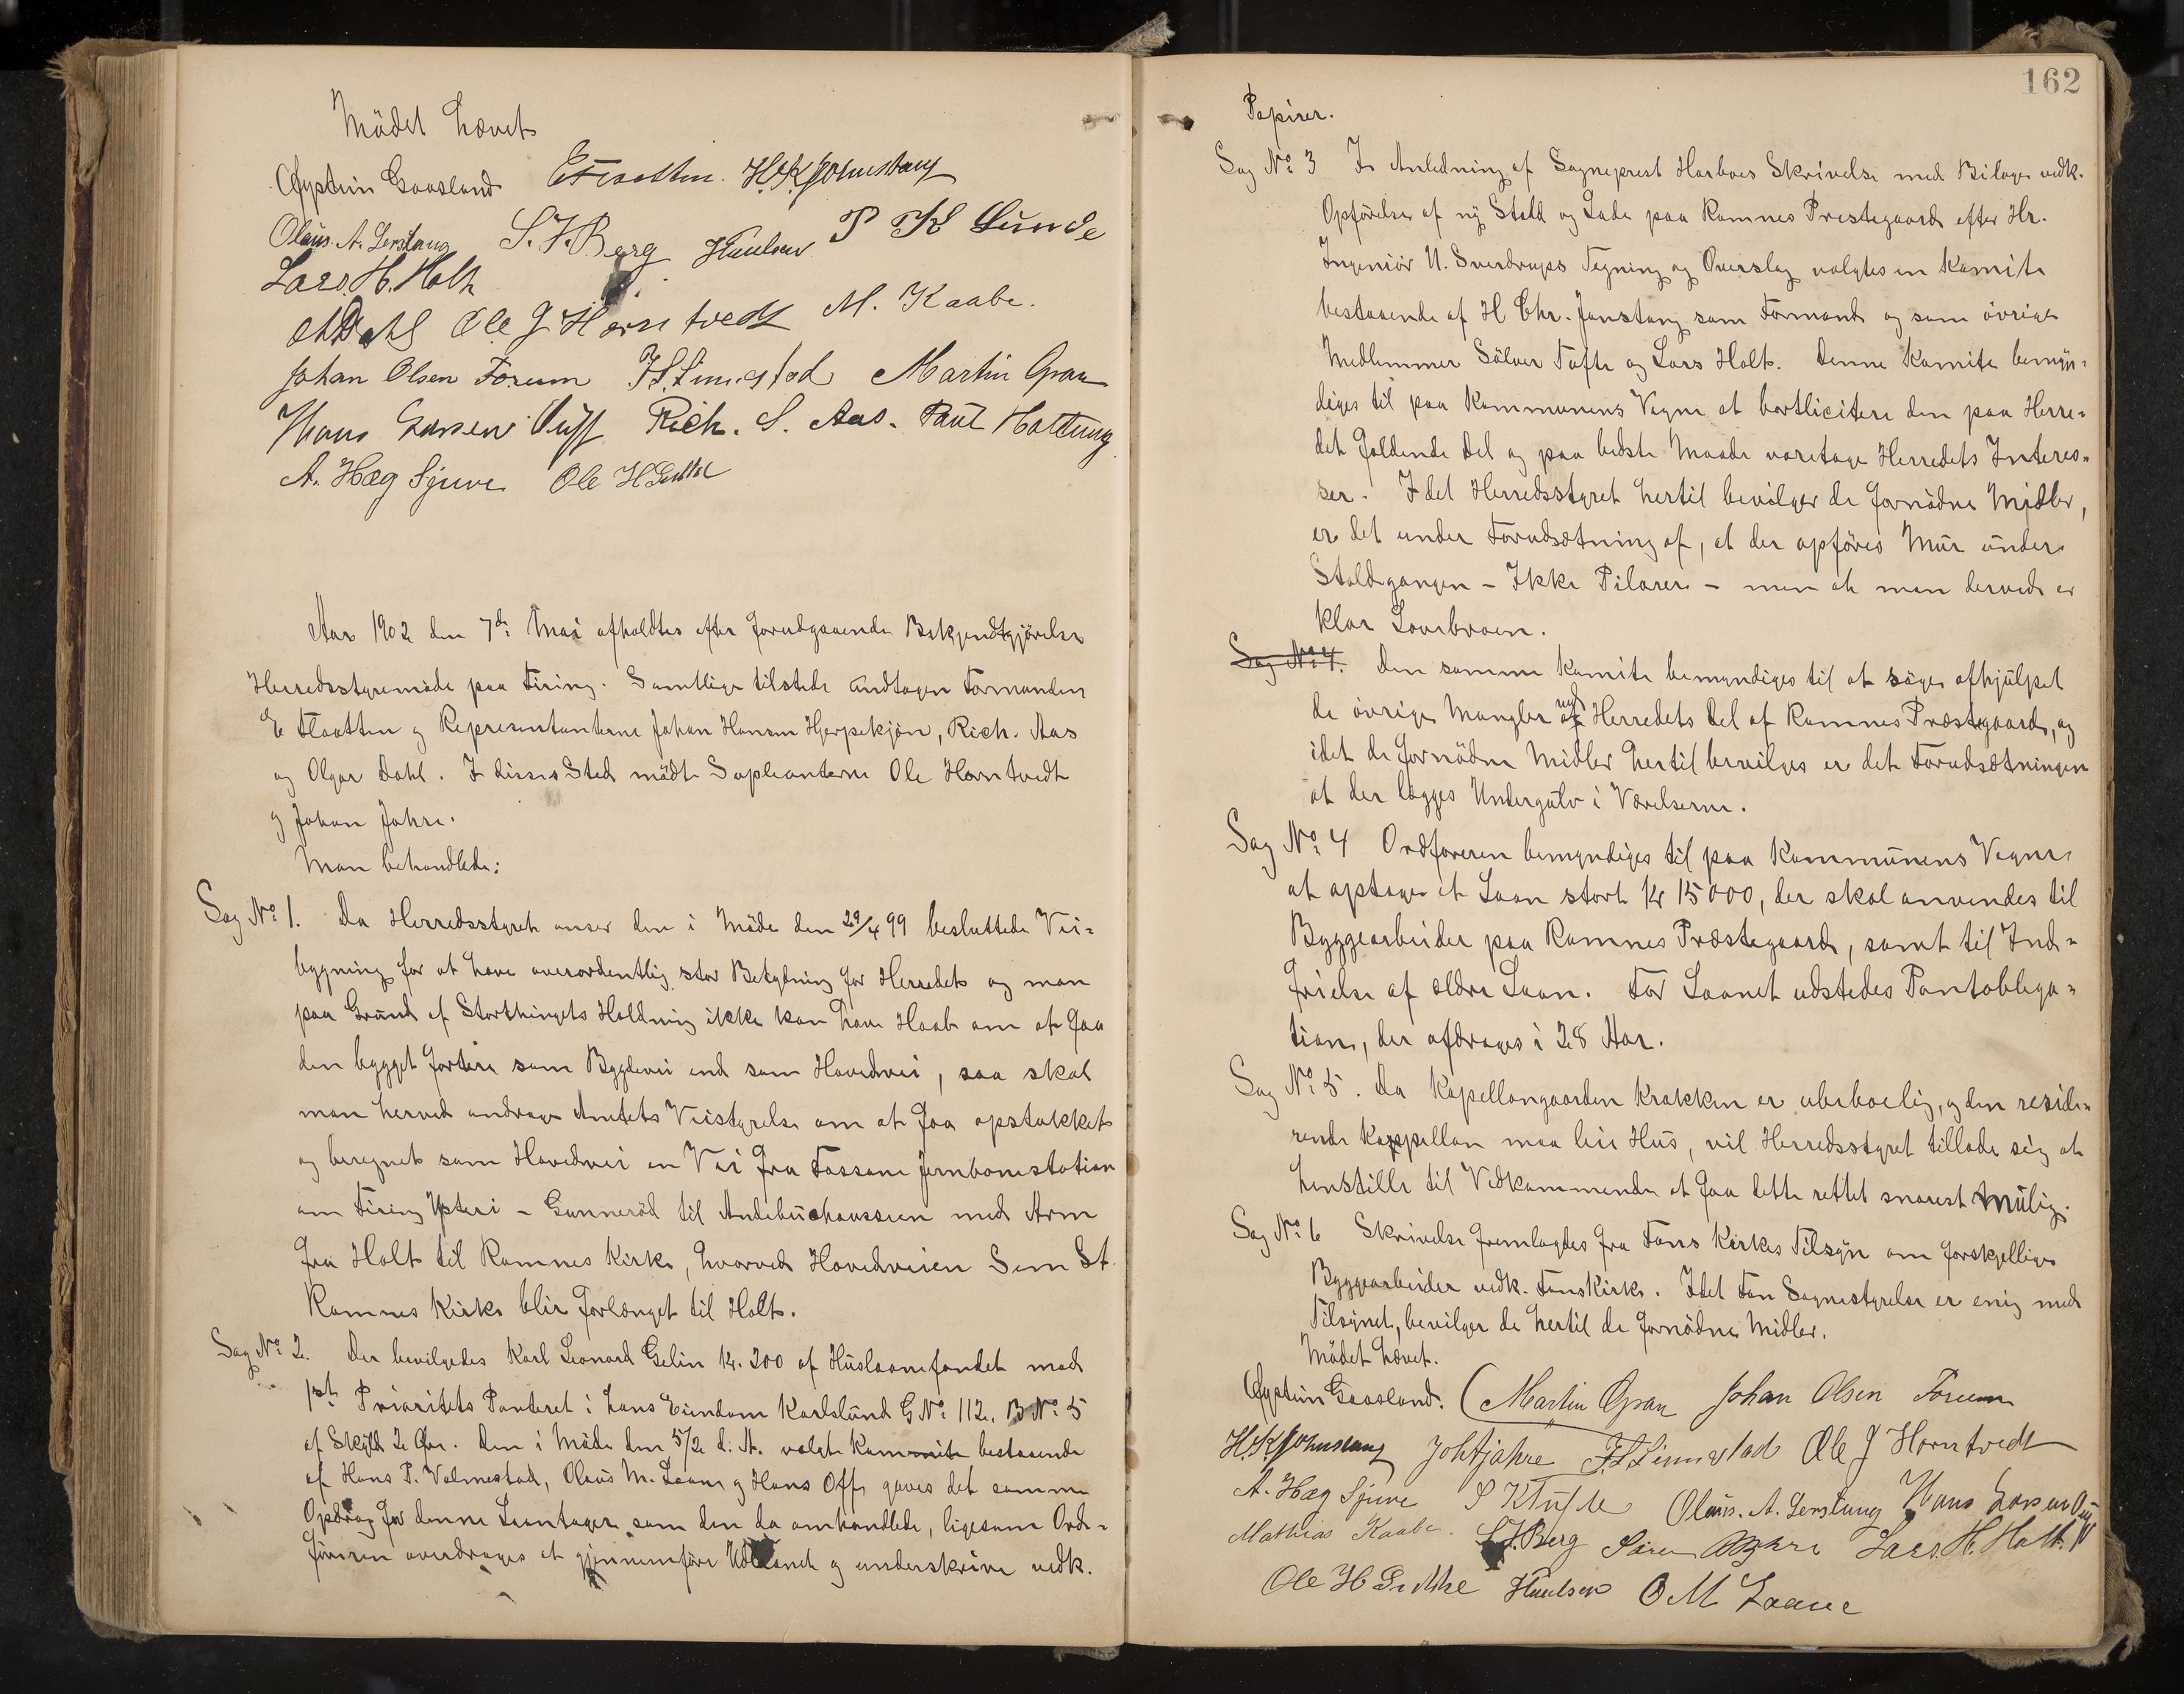 Mödet hævet
Øystein Gaasland E Flaatten. H. Kr Johnstang
Olaus. A. Lerstang S. J. Berg HPaulsen P K Lunde
Lars. H. Holt
A Dahl Ole J Horntvedt M. Kaabe.
Johan Olsen Forum F. L. Linnestad Martin Gran
Hans Larsen Ruff Rich. S. Aas. Paul Hottung
A. Hæg Sjuve Ole H Gjelstad
Aar 1902 den 7de Mai afholdtes efter forudgaaende Bekjendtgjörelse
Herredsstyremöde paa Firing. Samtlige tilstede undtagen Formanden
E Flaatten og Repræsentanterne Johan Hansen Hjerpekjøn, Rich. Aas
og Olgar Dahl. I disses Sted mödte Suplianterne Ole Horntvedt
og Johan Jahre.
Man behandlede:
Sag No 1. Da Herredsstyret anser den i Möde den 29/4 99 besluttede Vei-
bygning for at have overordentlig stor Betydning for Herredet og man
paa Grund af Storthingets Holdning ikke kan have Haab om at faa
den bygget fortere som Bygdevei end som Hovedvei, saa skal
man herved andrage Amtets Veistyrelse om at faa opstukket
og beregnet som Hovedvei en Vei fra Fossane Jernbanestation
om Firing Ypteri - Gunneröd til Andebuchausseen med Arm
fra Holt til Ramnes Kirke, hvorved Hovedveien Sem St.
Ramnes Kirke blir forlænget til Holt.
Sag No 2. Der bevilgedes Karl Leonard Gelin Kr. 200 af Huslaanefondet mod
1ste Prioritets Panteret i hans Eiendom Karlslund G No 112. B No 5
af Skyld 2 Øre. Den i Möde den 5/2 d. A. valgte Kommite bestaaende
af Hans P. Valmestad, Olaus M. Laane og Hans Off gaves det samme
Opdrag for denne Laantager som den da omhandlede, ligesom Ord-
föreren overdrages at gjennemföre Udlaanet og underskrive vedk.
162
Papirer.
Sag No 3 I Anledning af Sogneprest Harboes Skrivelse med Bilage vedk.
Opförelse af ny Stald og Lade paa Ramnes Prestegaard efter Hr.
Ingeniör U. Sverdrups Tegning og Overslag valgtes en Komite
bestaaende af H Chr. Jonstang som Formand og som övrige
Medlemmer Sölver Tufte og Lars Holt. Denne Komite bemyn-
diges til paa Kommunens Vegne at bortlicitere den paa Herre-
det faldende Del og paa bedste Maade varetage Herredets Interes-
ser. Idet Herredsstyret hertil bevilger de fornödne Midler,
er det under Forudsætning af, at der opföres Mur under
Staldgangen - Ikke Pilarer - men at man derved er
klar Lovebroen.
Sag No 4. Den samme Komite bemyndiges til at söge afhjulpet
de övrige Mangler ved Herredets Del af Ramnes Præstegaard, og
idet de fornödne Midler hertil bevilges er det Forudsætningen
at der lægges Undergulv i Værelserne.
Sag No 4 Ordföreren bemyndiges til paa Kommunens Vegne
at optage et Laan stort Kr 15000, der skal anvendes til
Byggearbeider paa Ramnes Præstegaard, samt til Ind-
frielse af ældre Laan. For Laanet udstedes Pantobliga-
tion, der afdrages i 28 Aar.
Sag No 5. Da Kapellangaarden Krakken er ubeboelig, og den reside-
rende Kappellan maa leie Hus, vil Herredsstyret tillade sig at
henstille til Vedkommende at faa dette rettet snarest mulig.
Sag No 6 Skrivelse fremlagdes fra Fons Kirkes Tilsyn om forskjellige
Byggearbeider vedk. Fons Kirke. Idet Fon Sognestyrelse er enig med
Tilsynet, bevilger de hertil de fornödne Midler.
Mödet hævet.
Øystein Gaasland. Martin Gran Johan Olsen Forum
H. Kr Johnstang Joh A Jahre F. L. Linnestad Ole J Horntvedt
A. Hæg Sjuve S K Tufte Olaus. A. Lerstang Hans Larsen Ruff
Mathias Kaabe. S. J. Berg Sören Lars. H. Holt.
Ole H HPaulsen O M Laane